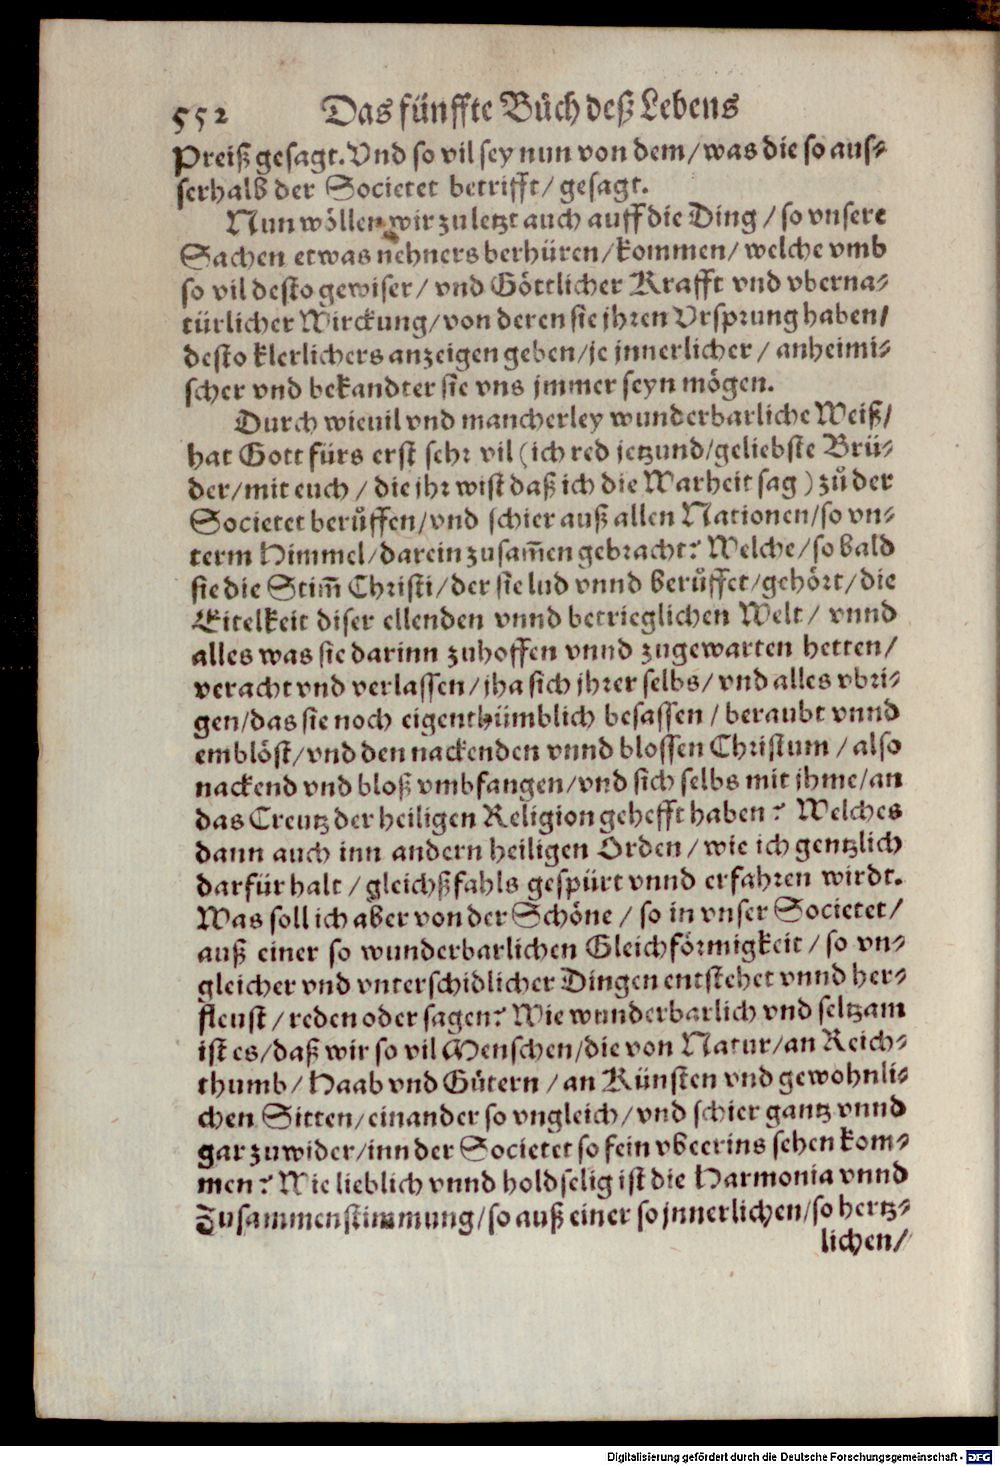 552 Das fünffte Bůch deß Lebens
Preiß gesagt. Vnd so vil sey nun von dem/ was die so aus-
serhalb der Societet betrifft/ gesagt.
Nun wöllen wir zu letzt auch auff die Ding / so vnsere
Sachen etwas nehners berhüren/ kommen/ welche vmb
so vil desto gewiser/ vnd Göttlicher Krafft vnd vberna-
türlicher Wirckung/ von deren sie jhren Vrsprung haben/
desto klerlichers anzeigen geben/ je jnnerlicher / anheimi-
scher vnd bekandter sie vns jmmer seyn mögen.
Durch wieuil vnd mancherley wunderbarliche Weiß/
hat Gott fürs erst sehr vil (ich red jetzund/ geliebste Brü-
der/ mit euch / die jhr wist daß ich die Warheit sag ) zů der
Societet berůffen/ vnd schier auß allen Nationen/ so vn-
term Himmel/ darein zusam̃en gebracht? Welche/ so bald
sie die Stim̃ Christi/ der sie lud vnnd berůffet/ gehört/ die
Eitelkeit diser ellenden vnnd betrieglichen Welt/ vnnd
alles was sie darinn zuhoffen vnnd zugewarten hetten/
veracht vnd verlassen/ jha sich jhrer selbs/ vnd alles vbri-
gen/ das sie noch eigenthümblich besassen / beraubt vnnd
emblöst/ vnd den nackenden vnnd blossen Christum / also
nackend vnd bloß vmbfangen/ vnd sich selbs mit jhme/ an
das Creutz der heiligen Religion gehefft haben? Welches
dann auch inn andern heiligen Orden / wie ich gentzlich
darfür halt / gleichßfahls gespürt vnnd erfahren wirdt.
Was soll ich aber von der Schöne / so in vnser Societet/
auß einer so wunderbarlichen Gleichförmigkeit / so vn-
gleicher vnd vnterschidlicher Dingen entstehet vnnd her-
fleust / reden oder sagen? Wie wunderbarlich vnd seltzam
ist es/ daß wir so vil Menschen/ die von Natur/ an Reich-
thumb/ Haab vnd Gütern / an Künsten vnd gewohnli-
chen Sitten/ einander so vngleich/ vnd schier gantz vnnd
gar zuwider/ inn der Societet so fein vbeerins sehen kom-
men? Wie lieblich vnnd holdselig ist die Harmonia vnnd
Zusammenstimmung/ so auß einer so jnnerlichen/ so hertz-
lichen/
Digitalisierung gefördert durch die Deutsche Forschungsgemeinschaft - DFG